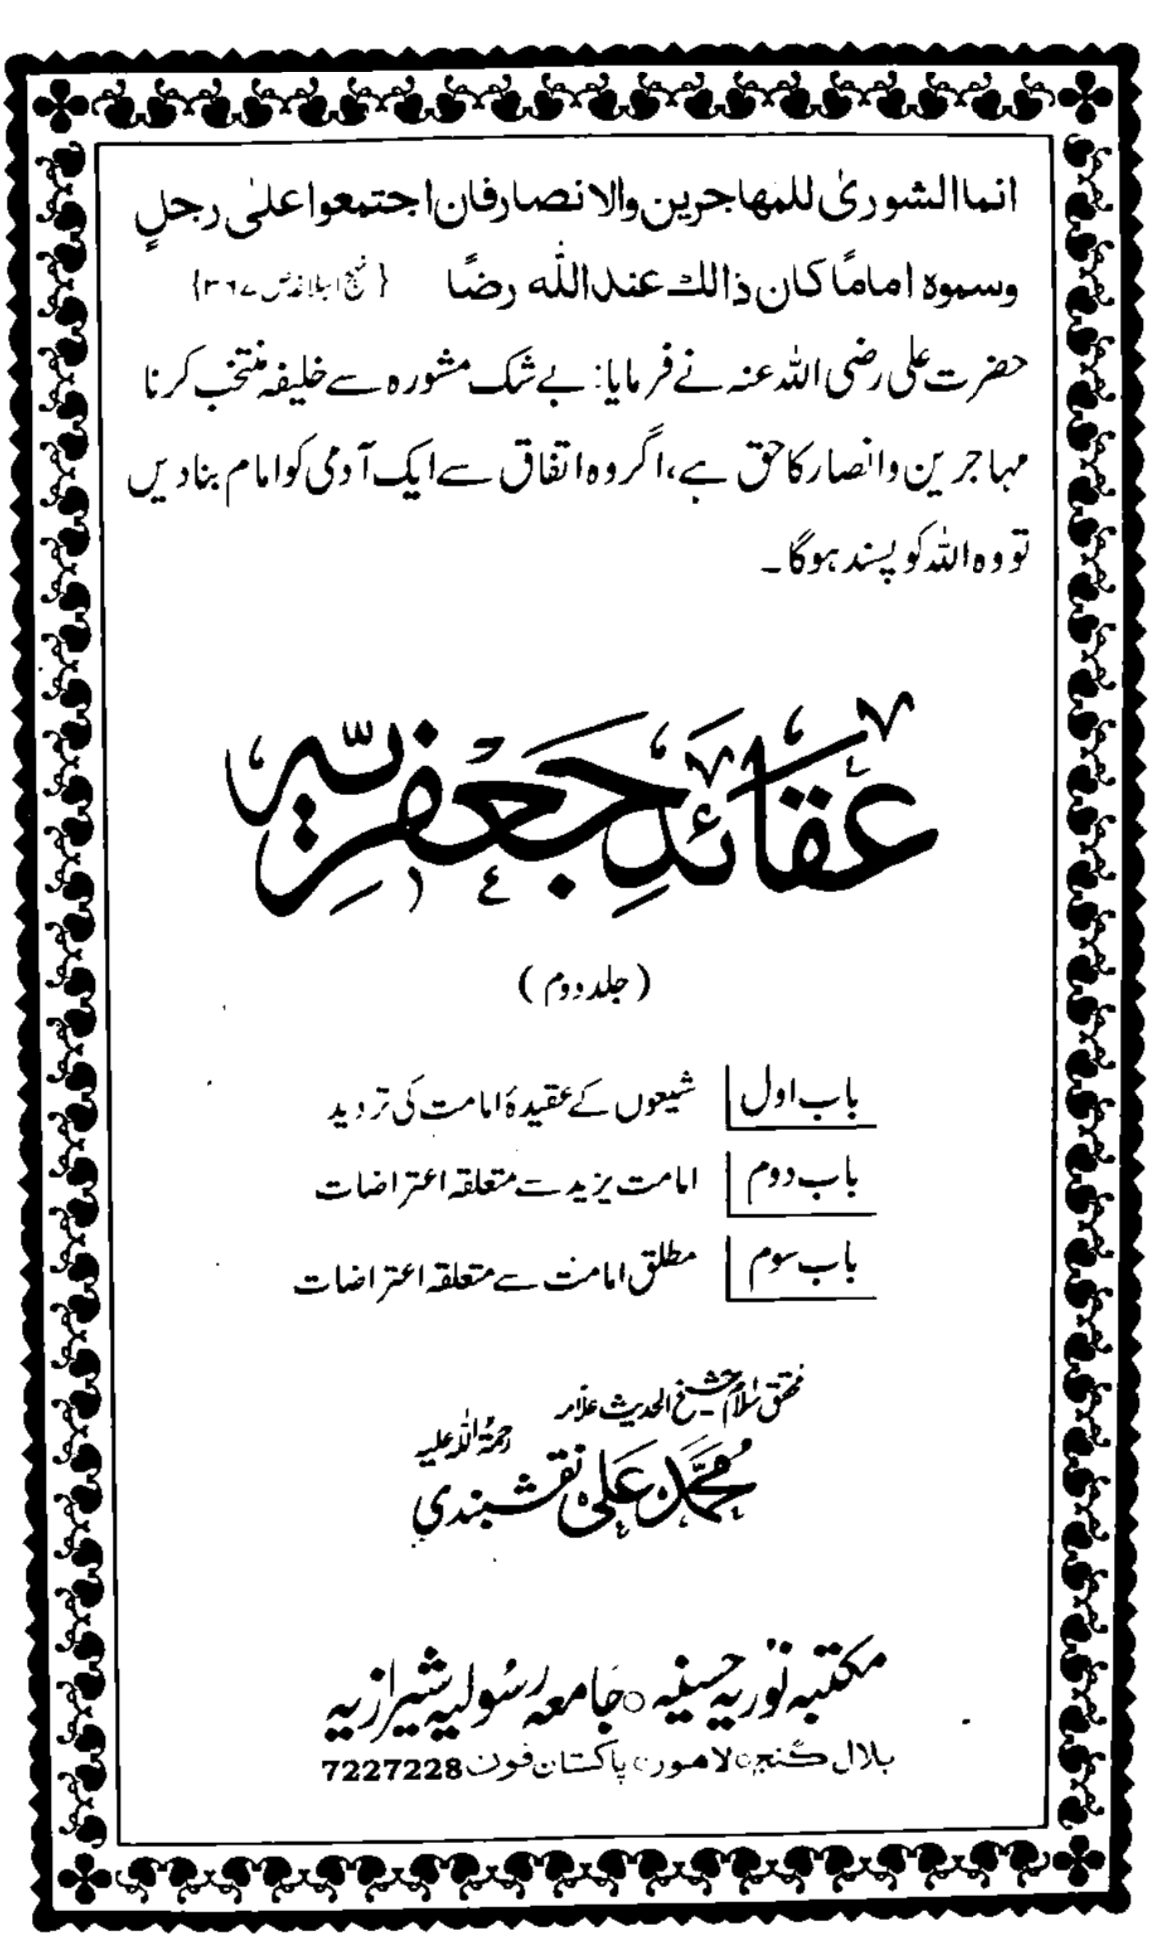 انما الشوریٰ للمهاجرین والانصار فان اجتمعوا علیٰ رجلٍ
وسموه امامًا کان ذالك عند اللّٰه رضًا {نہج البلاغہ ص ۳۶۷}
حضرت علی رضی اللہ عنہ نے فرمایا: بے شک مشورہ سے خلیفہ منتخب کرنا
مہاجرین وانصار کا حق ہے، اگر وہ اتفاق سے ایک آدمی کو امام بنادیں
تو وہ اللہ کو پسند ہوگا۔
عقائدِ جعفریہ
(جلد دوم)
باب اول شیعوں کے عقیدۂ امامت کی تردید
باب دوم امامت یزید سے متعلقہ اعتراضات
باب سوم مطلق امامت سے متعلقہ اعتراضات
محقق اسلام شیخ الحدیث علامہ
محمد علی نقشبندی رحمۃ اللہ علیہ
مکتبہ نوریہ حسنیہ ○ جامعہ رسولیہ شیرازیہ
بلال گنج ○ لاہور ○ پاکستان فون 7227228